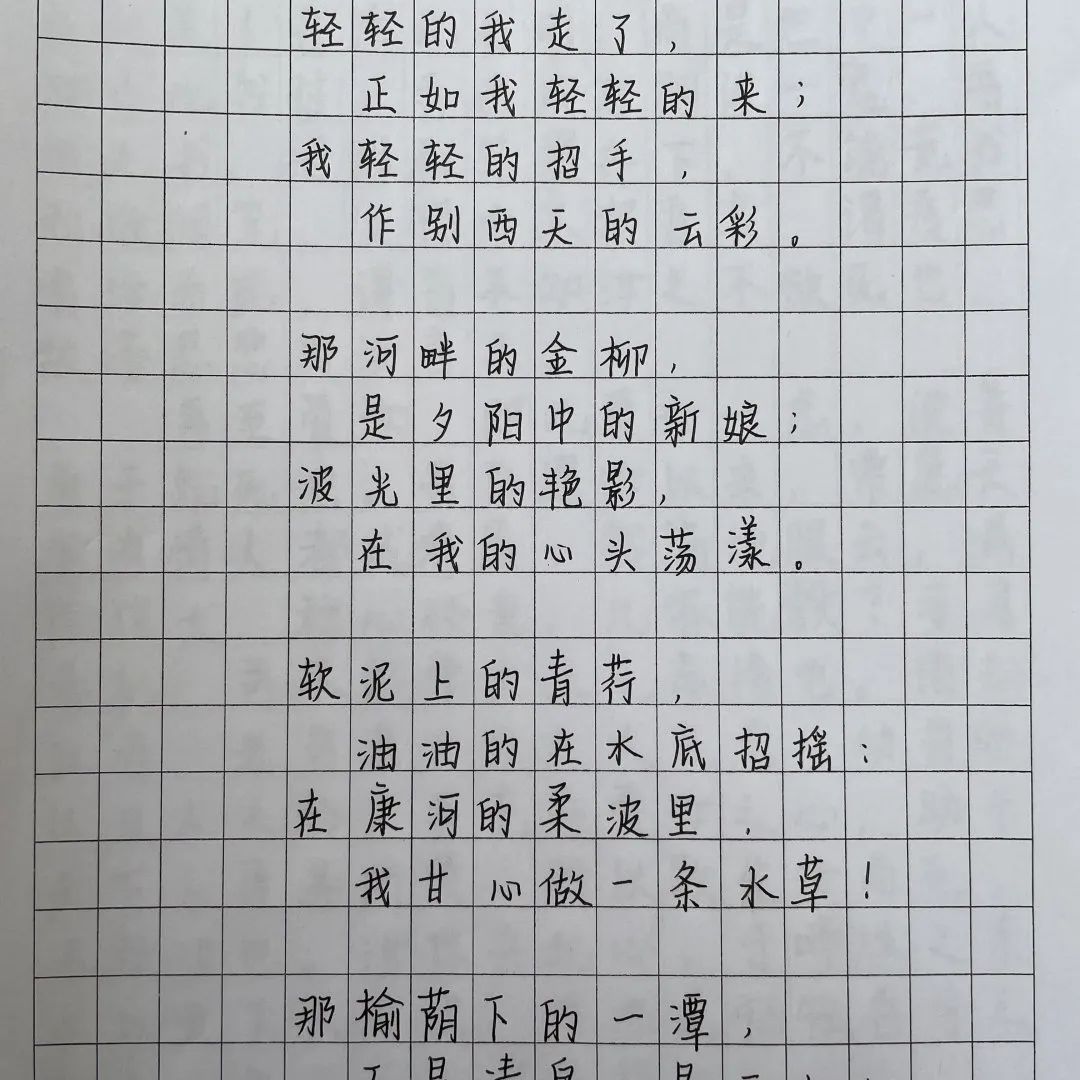 轻轻的我走了，
正如我轻轻的来；
我轻轻的招手，
作别西天的云彩。
那河畔的金柳，
是夕阳中的新娘；
波光里的艳影，
在我的心头荡漾。
软泥上的青荇，
油油的在水底招摇：
在康河的柔波里，
我甘心做一条水草！
那榆荫下的一潭，